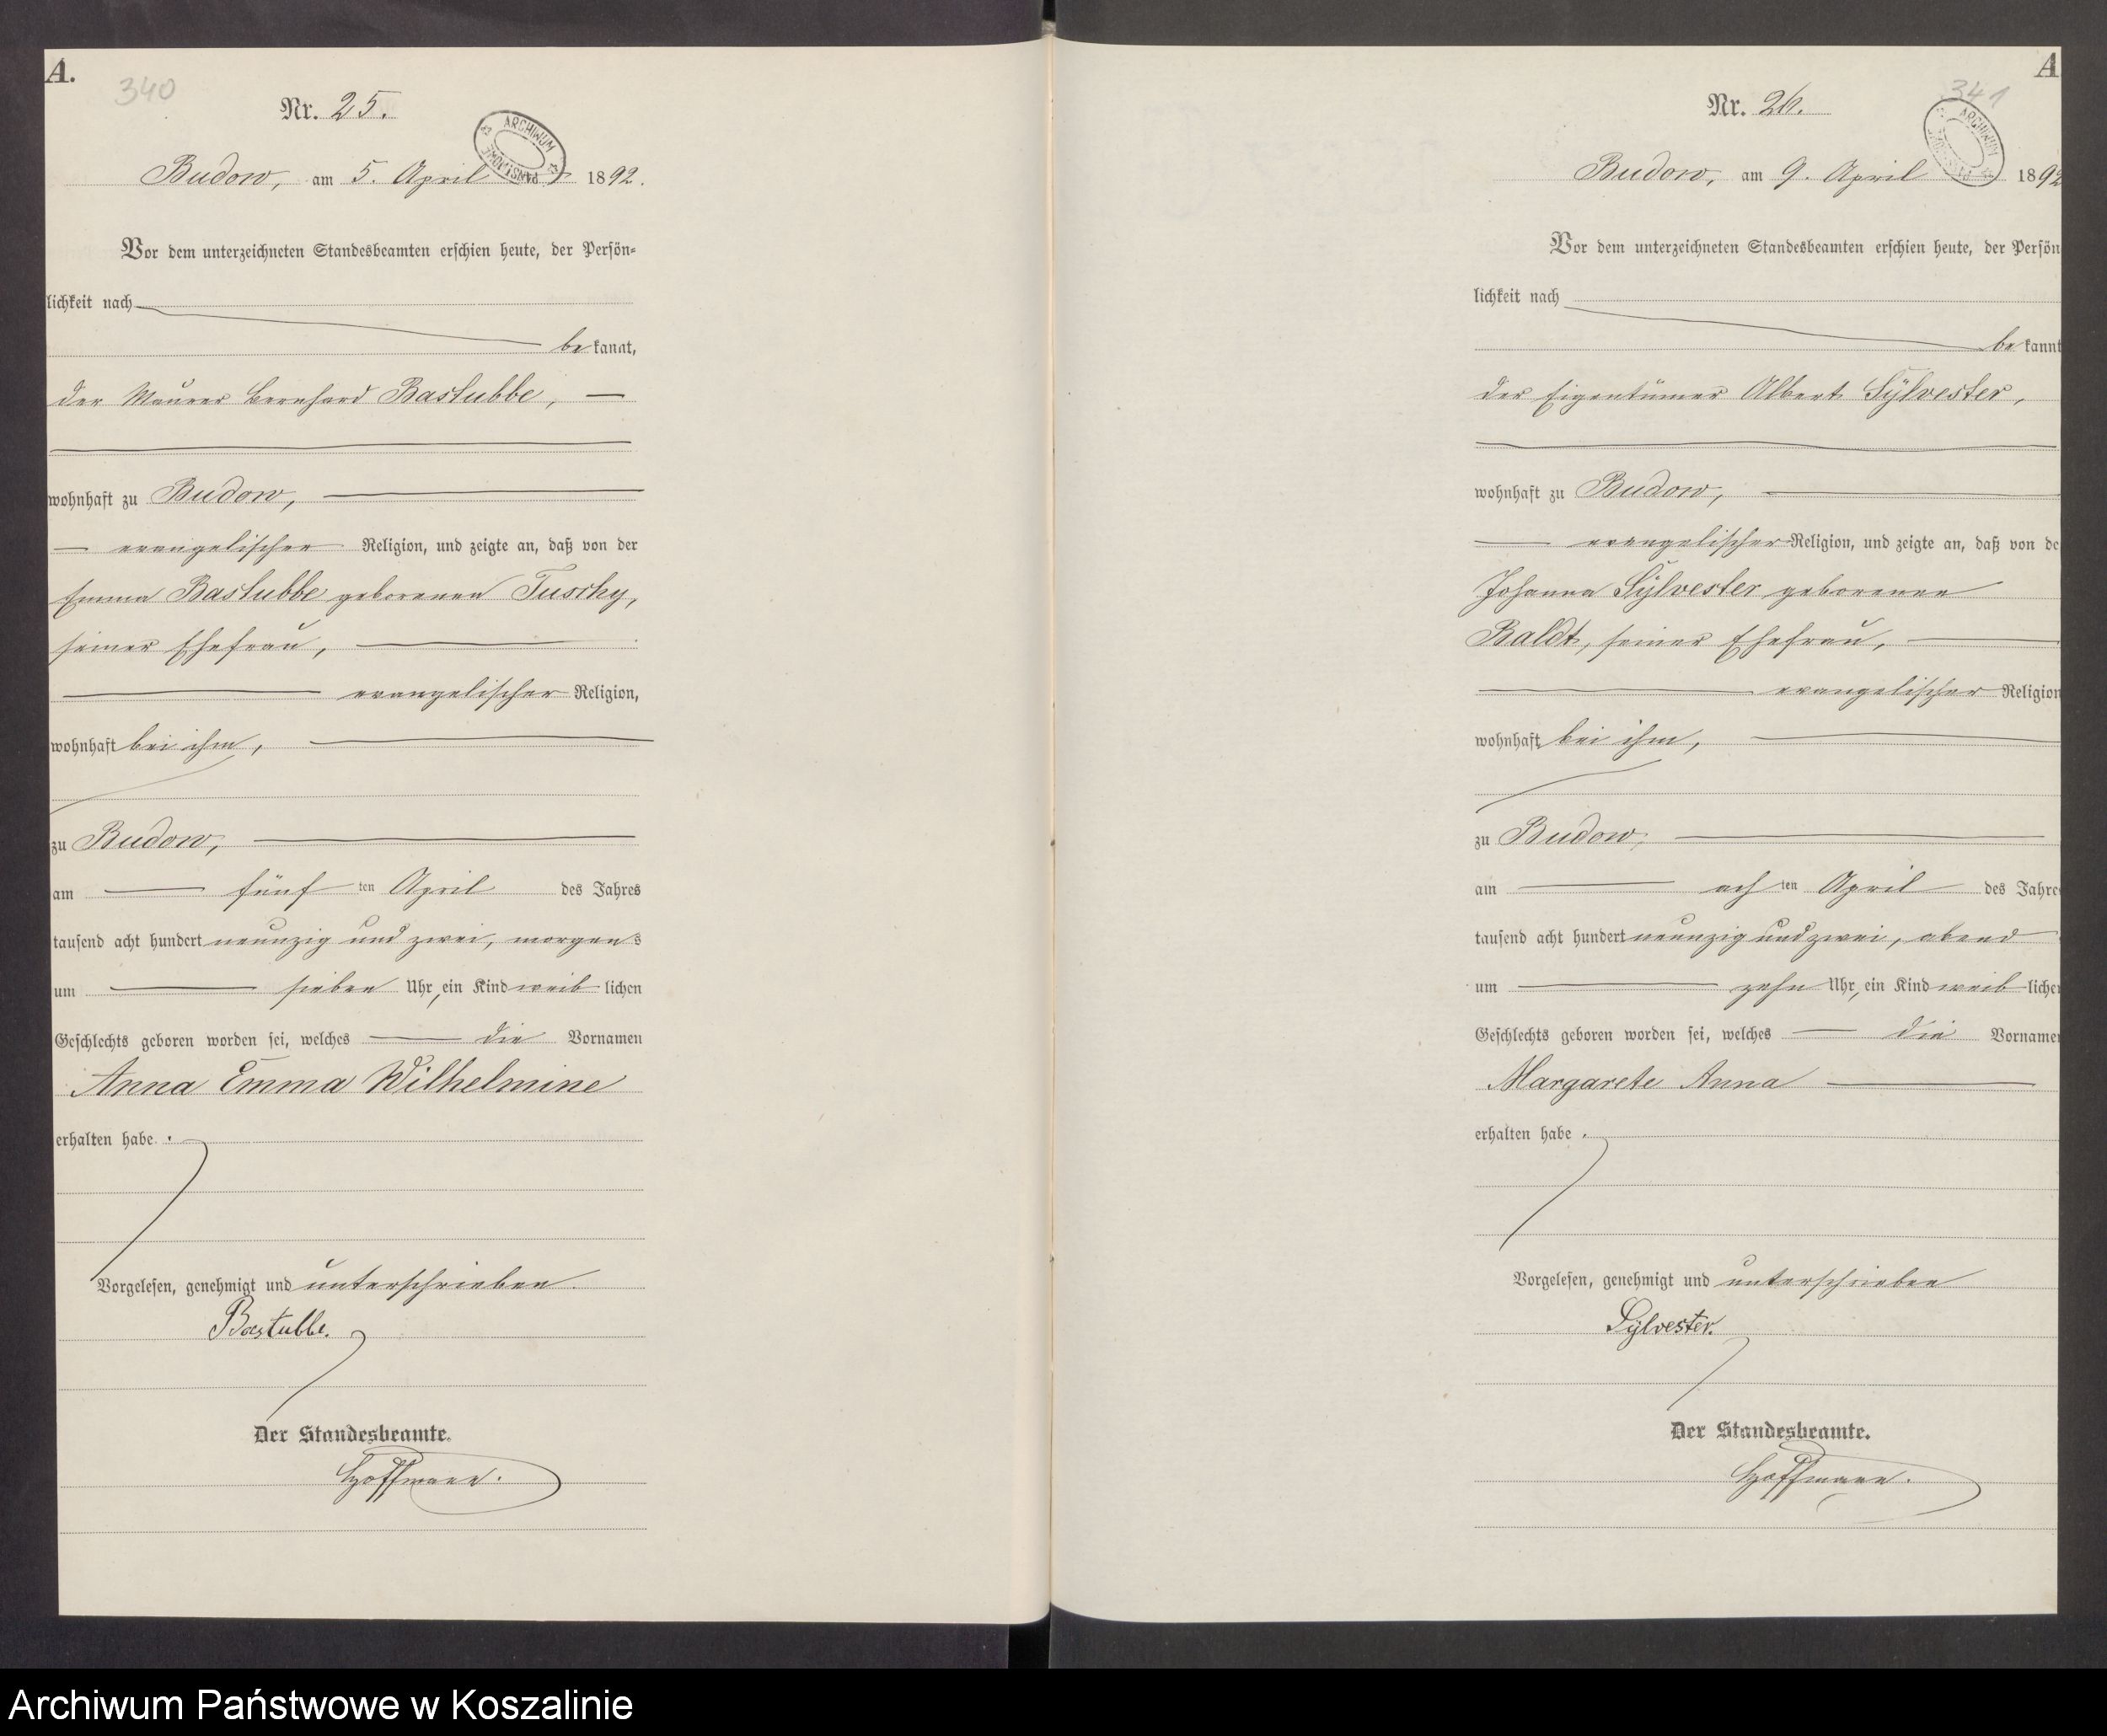 A.
340
Nr. 25.
ARCHIWUM PAŃSTWOWE
Budow, am 5. April 1892.
Vor dem unterzeichneten Standesbeamten erschien heute, der Persön-
lichkeit nach
be kannt,
der Maurer Bernhard Bastubbe,
wohnhaft zu Budow,
evangelischer Religion, und zeigte an, daß von der
Emma Bastubbe geborenen Tuschy,
seiner Ehefrau,
evangelischer Religion,
wohnhaft bei ihm,
zu Budow,
am fünf ten April des Jahres
tausend acht hundert neunzig und zwei, morgens
um sieben Uhr, ein Kind weib lichen
Geschlechts geboren worden sei, welches die Vornamen
Anna Emma Wilhelmine
erhalten habe.
Vorgelesen, genehmigt und unterschrieben.
Bastubbe.
Der Standesbeamte.
Hoffmann.
A
341
Nr. 26.
ARCHIWUM
Budow, am 9. April 1892
Vor dem unterzeichneten Standesbeamten erschien heute, der Persön
lichkeit nach
be kannt
der Eigentümer Albert Sylvester,
wohnhaft zu Budow,
evangelischer Religion, und zeigte an, daß von de
Johanna Sylvester geborenen
Baldt, seiner Ehefrau,
evangelischer Religion
wohnhaft bei ihm,
zu Budow,
am ach ten April des Jahre
tausend acht hundert neunzig und zwei, abend
um zehn Uhr, ein Kind weib liche
Geschlechts geboren worden sei, welches die Vorname
Margarete Anna
erhalten habe.
Vorgelesen, genehmigt und unterschrieben
Sylvester.
Der Standesbeamte.
Hoffmann.
Archiwum Państwowe w Koszalinie